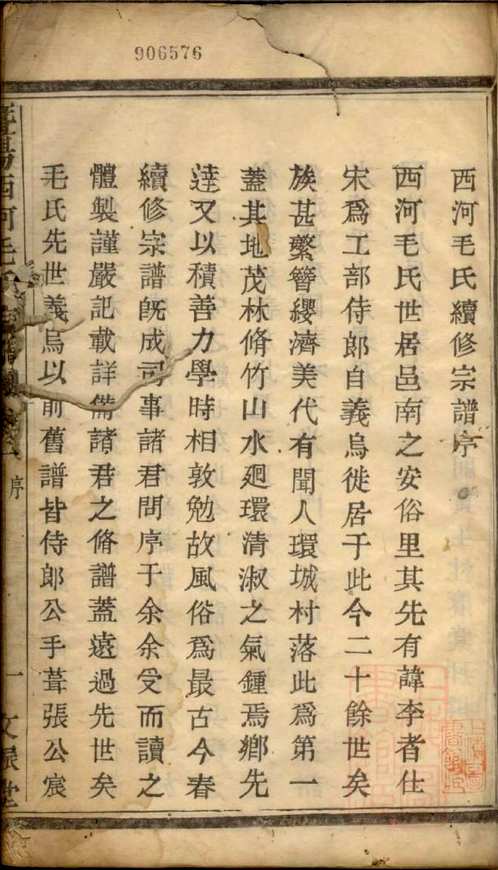 906576
西河毛氏續修宗譜序
西河毛氏世居邑南之安俗里其先有諱李者仕
宋爲工部侍郎自義烏徙居于此今二十餘世矣
族甚蘩簪纓濟美代有聞人環城村落此爲第一
蓋其地茂林脩竹山水廻環清淑之氣鍾焉鄉先
達又以積善力學時相敦勉故風俗爲最古今春
續修宗譜旣成司事諸君問序于余余受而讀之
體製謹嚴記載詳備諸君之脩譜蓋遠過先世矣
毛氏先世義烏以前舊譜皆侍郎公手葺張公宸
西河毛氏宗譜
序
一
文振堂